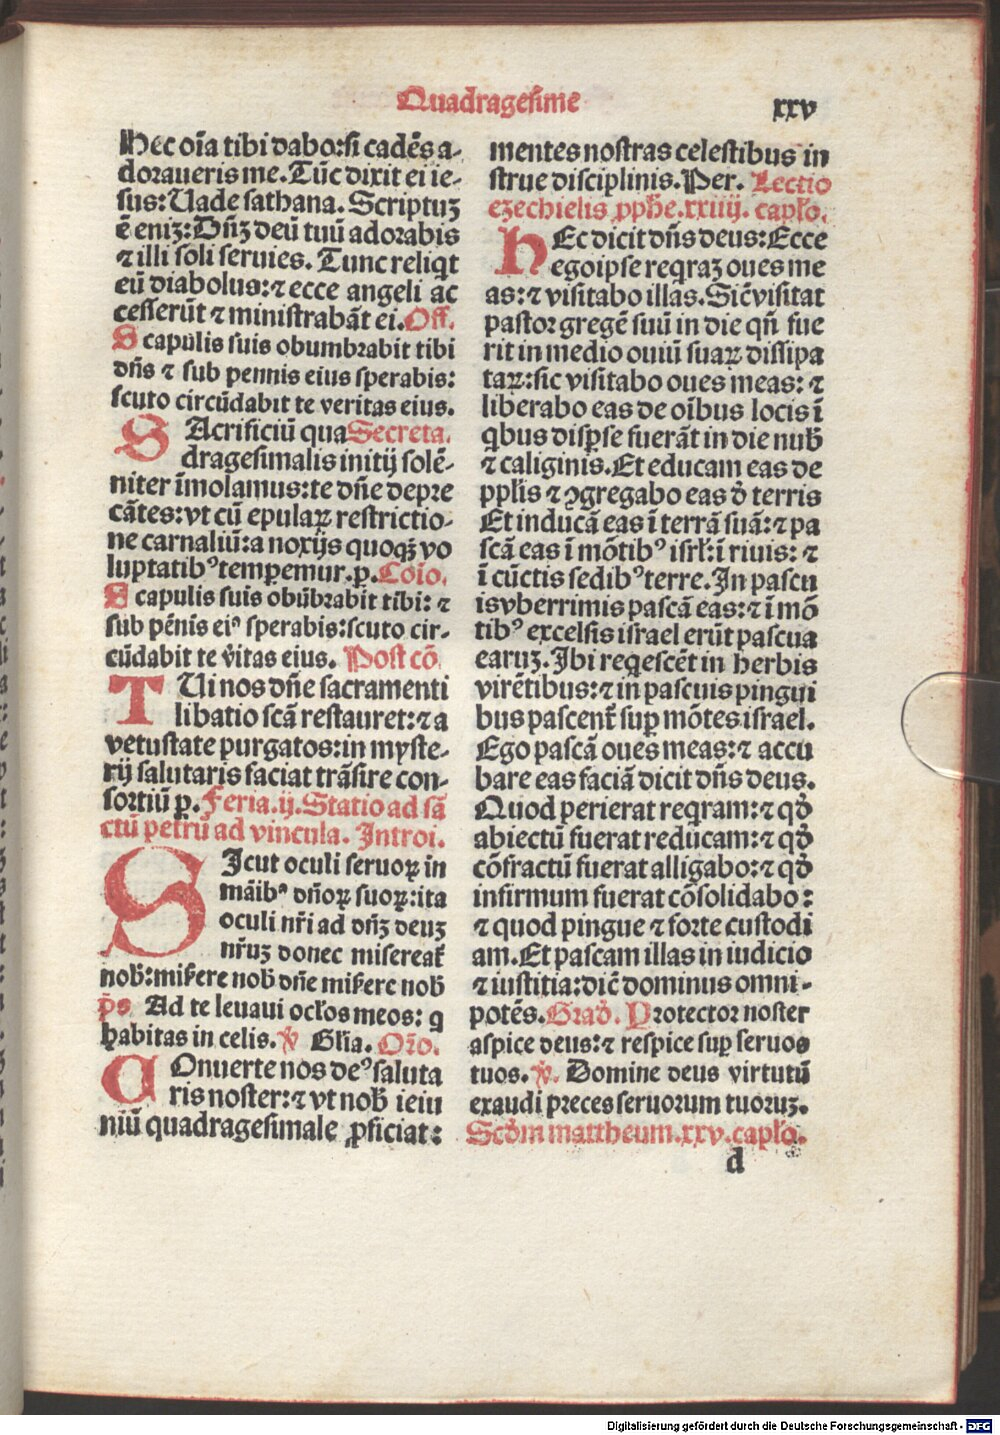 Quadragesime
xxv
Hec oīa tibi dabo: si cadēs a-
doraueris me. Tūc dixit ei ie-
sus: Uade sathana. Scriptuꝫ
ē eniꝫ: Dn̄ꝫ deū tuū adorabis
⁊ illi soli seruies. Tunc reliq̇t
eū diabolus: ⁊ ecce angeli ac
cesserūt ⁊ ministrabāt ei. Off.
Scapulis suis obumbrabit tibi
dn̄s ⁊ sub pennis eius sperabis:
scuto circūdabit te veritas eius.
SAcrificiū qua Secreta.
dragesimalis initij solē-
niter īmolamus: te dn̄e depre
cātes: vt cū epulaꝝ restrictio-
ne carnaliū: a noxijs quoqꝫ vo
luptatibꝰ temꝑemur. p. Coīo.
Scapulis suis obūbrabit tibi: ⁊
sub pēnis eiꝰ sperabis: scuto cir-
cūdabit te v̄itas eius. Post cō
TUi nos dn̄e sacramenti
libatio scā restauret: ⁊ a
vetustate purgatos: in myste-
rij salutaris faciat trāsire con-
sortiū p. Feria.ij. Statio ad sā
ctū petrū ad vincula. Introi.
SIcut oculi seruoꝝ in
māibꝰ dn̄oꝝ suoꝝ: ita
oculi nr̄i ad dn̄ꝫ deuꝫ
nr̄uꝫ donec misereat̄
nob̄: mis̄ere nob̄ dn̄e mis̄ere nob̄
p̄s Ad te leuaui ocl̄os meos: q
habitas in celis. ℣ Gl̄ia. Or̄o.
COnuerte nos deꝰ saluta
ris noster: ⁊ vt nob̄ ieiu
niū quadragesimale ꝓficiat:
mentes nostras celestibus in
strue disciplinis. Per. Lectio
ezechielis ꝓph̄e. xxiiij. capl̄o.
HEc dicit dn̄s deus: Ecce
ego ipse reqraꝫ oues me
as: ⁊ visitabo illas. Sic̄ visitat
pastor gregē suū in die qn̄ fue
rit in medio ouiū suaꝝ dissipa
taꝝ: sic visitabo oues meas: ⁊
liberabo eas de oībus locis ī
qbus disꝑse fuerāt in die nub̄
⁊ caliginis. Et educam eas de
ppl̄is ⁊ ꝯgregabo eas d̄ terris
Et inducā eas ī terrā suā: ⁊ pa
scā eas ī mōtibꝰ isrl̄: ī riuis: ⁊
ī cūctis sedibꝰ terre. In pascu
is vberrimis pascā eas: ⁊ ī mō
tibꝰ excelsis israel erūt pascua
earuꝫ. Ibi reqescēt in herbis
virētibus: ⁊ in pascuis pingui
bus pascent̄ suꝑ mōtes israel.
Ego pascā oues meas: ⁊ accu
bare eas faciā dicit dn̄s deus.
Quod perierat reqram: ⁊ qd̄
abiectū fuerat reducam: ⁊ qd̄
cōfractū fuerat alligabo: ⁊ qd̄
infirmum fuerat cōsolidabo:
⁊ quod pingue ⁊ forte custodi
am. Et pascam illas in iudicio
⁊ iustitia: dic̄ dominus omni-
potēs. Grad̄. Protector noster
aspice deus: ⁊ respice suꝑ seruos
tuos. ℣. Domine deus virtutū
exaudi preces seruorum tuoruꝫ.
Scd̄m mattheum. xxv. capl̄o.
d
Digitalisierung gefördert durch die Deutsche Forschungsgemeinschaft - DFG